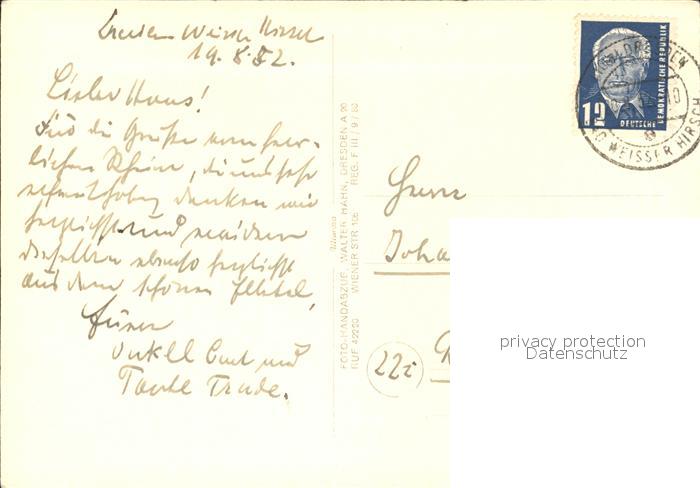 Dresden Weisser Hirsch
19. 8. 52.
Lieber Hans!
Für die Grüße vom herr-
lichen Rhein, die uns sehr
erfreut haben danken wir
herzlichst und erwidern
dieselben ebenso herzlichst
aus dem schönen Elbtal,
Onkel Curt und
Tante Trude.
FOTO-HANDABZUG, WALTER HAHN, DRESDEN A 20
RUF 42220 WIENER STR 106 REG. F III / 9 / 80
12
DEUTSCHE
DEMOKRATISCHE REPUBLIK
WEISSER HIRSCH
Herrn
Joha
22c
privacy protection
Datenschutz